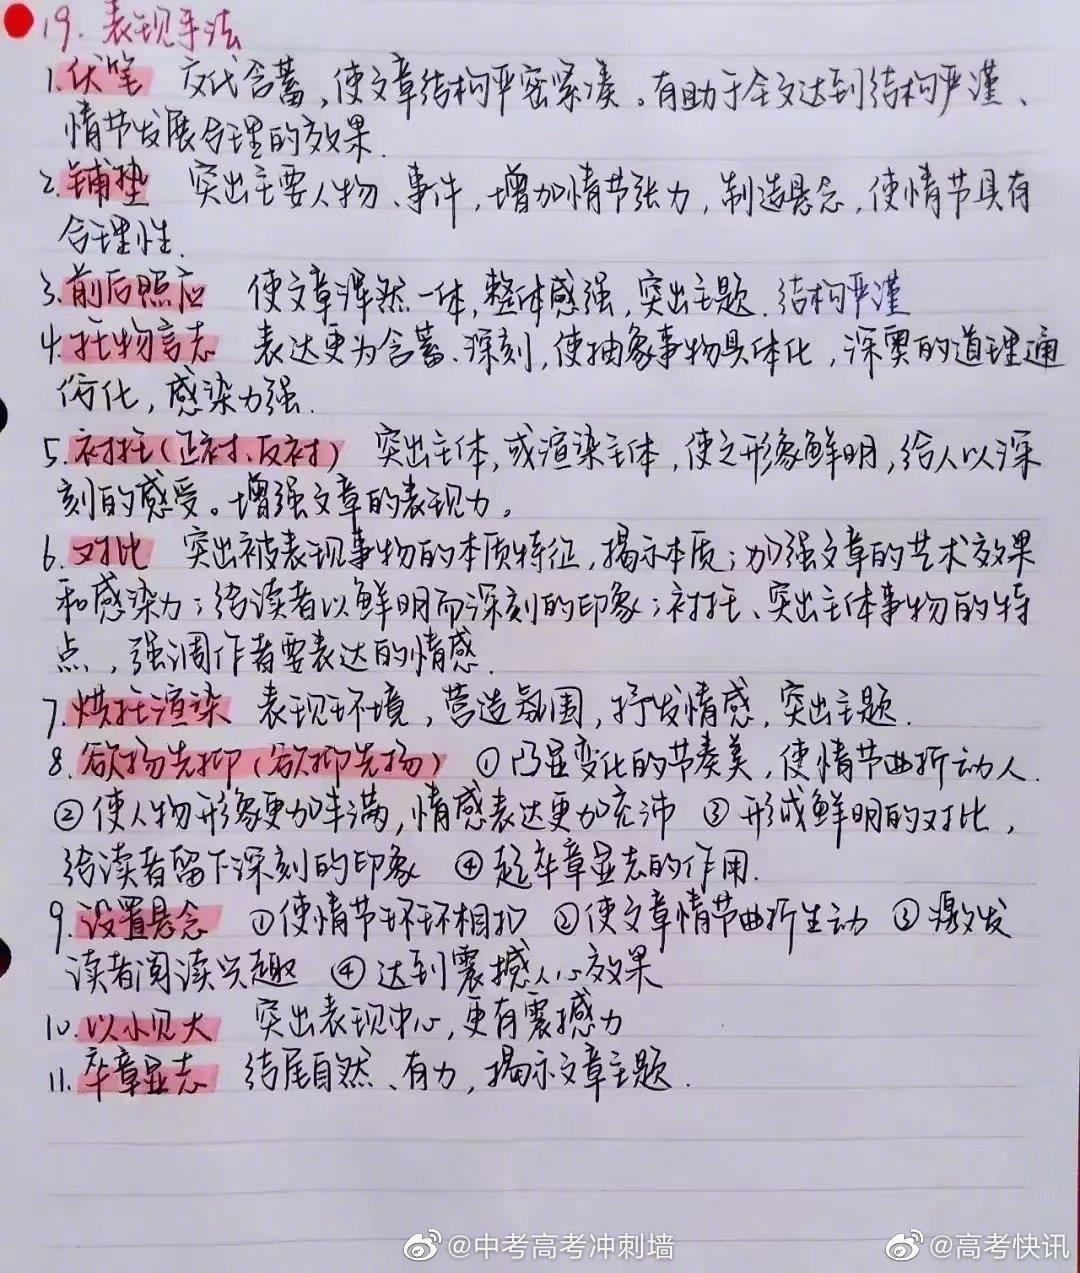 19. 表现手法
1.伏笔 交代含蓄,使文章结构严密紧凑。有助于全文达到结构严谨、
情节发展合理的效果.
2.铺垫 突出主要人物、事件,增加情节张力,制造悬念,使情节具有
合理性.
3.前后照应 使文章浑然一体,整体感强,突出主题.结构严谨
4.托物言志 表达更为含蓄.深刻,使抽象事物具体化,深奥的道理通
俗化,感染力强.
5.衬托(正衬、反衬) 突出主体,或渲染主体,使之形象鲜明,给人以深
刻的感受。增强文章的表现力。
6.对比 突出被表现事物的本质特征,揭示本质;加强文章的艺术效果
和感染力;给读者以鲜明而深刻的印象;衬托、突出主体事物的特
点,强调作者要表达的情感.
7.烘托渲染 表现环境,营造氛围,抒发情感,突出主题.
8.欲扬先抑(欲抑先扬) ①凸显变化的节奏美,使情节曲折动人.
②使人物形象更加丰满,情感表达更加充沛 ③形成鲜明的对比,
给读者留下深刻的印象 ④起卒章显志的作用.
9.设置悬念 ①使情节环环相扣 ②使文章情节曲折生动 ③激发
读者阅读兴趣 ④达到震撼人心效果
10.以小见大 突出表现中心,更有震撼力
11.卒章显志 结尾自然、有力,揭示文章主题.
@中考高考冲刺墙
@高考快讯